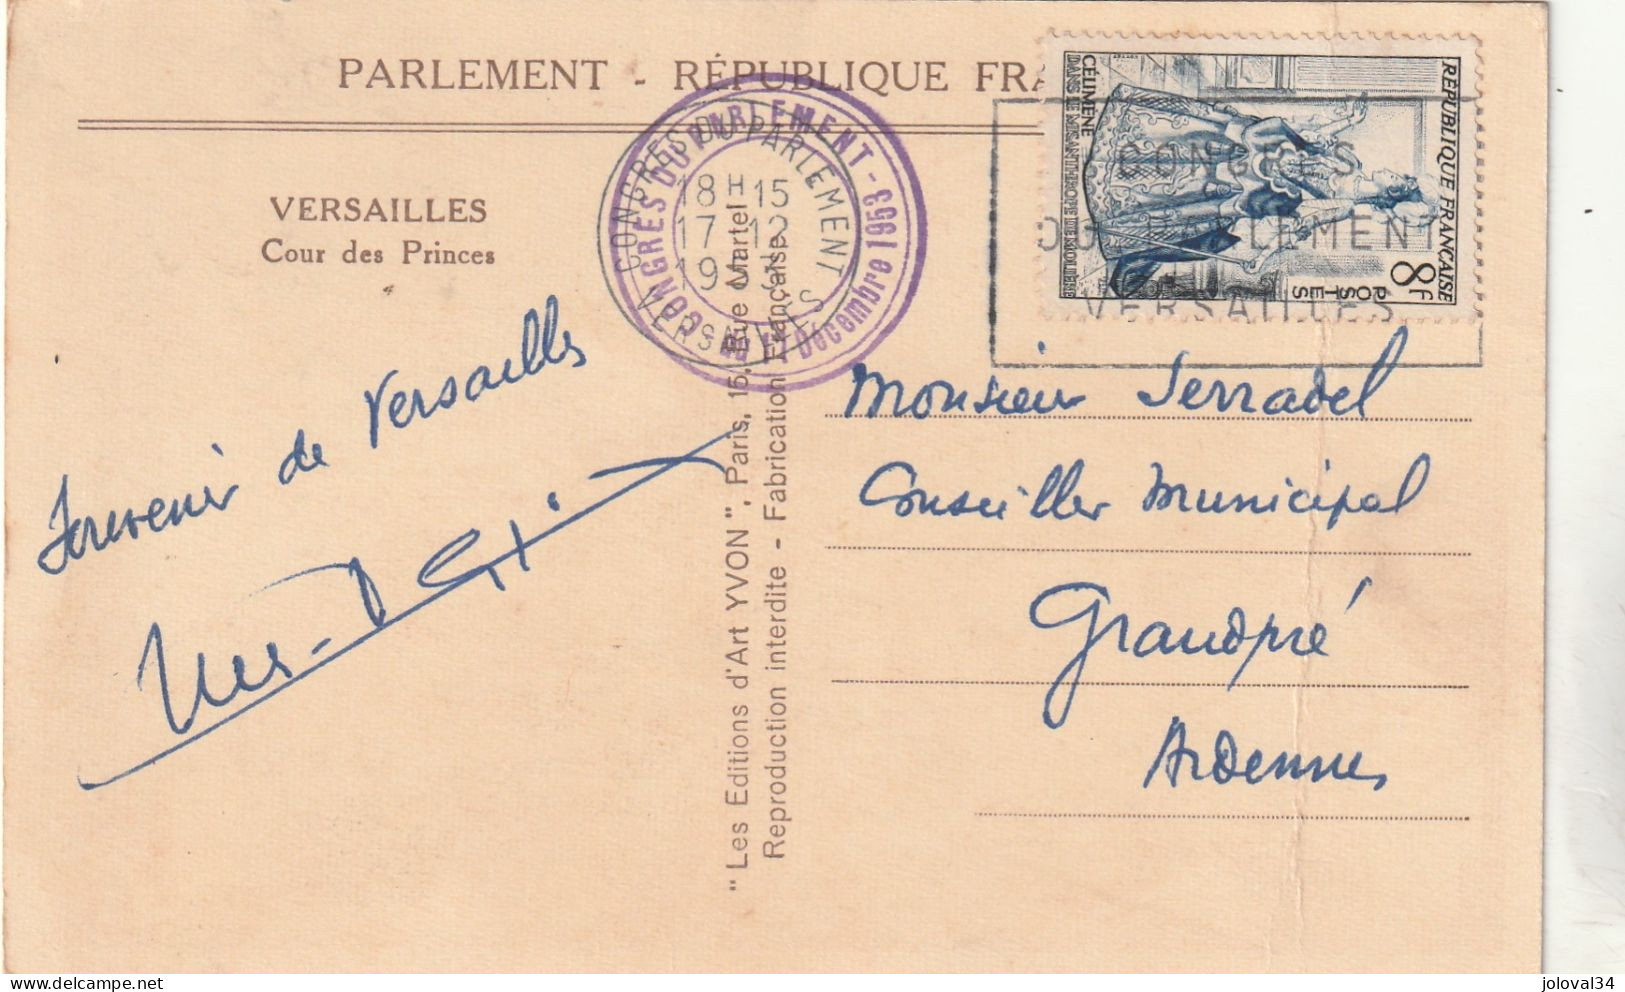 PARLEMENT - RÉPUBLIQUE FRA
VERSAILLES
Cour des Princes
CONGRES DU PARLEMENT - du 17 Décembre 1953
CONGRES DU PARLEMENT
18 H 15
17 - 12
19
VERSAILLES
CONGRES
DU PARLEMENT
VERSAILLES
RÉPUBLIQUE FRANÇAISE
8F
POSTES
CÉLIMÈNE
DANS LE MISANTHROPE DE MOLIÈRE
Souvenir de Versailles
"Les Editions d'Art YVON", Paris, 15, Rue Martel
Reproduction interdite - Fabrication Française
Monsieur Serradel
Conseiller Municipal
Grandpré
Ardennes
https://www.delcampe.net
joloval34